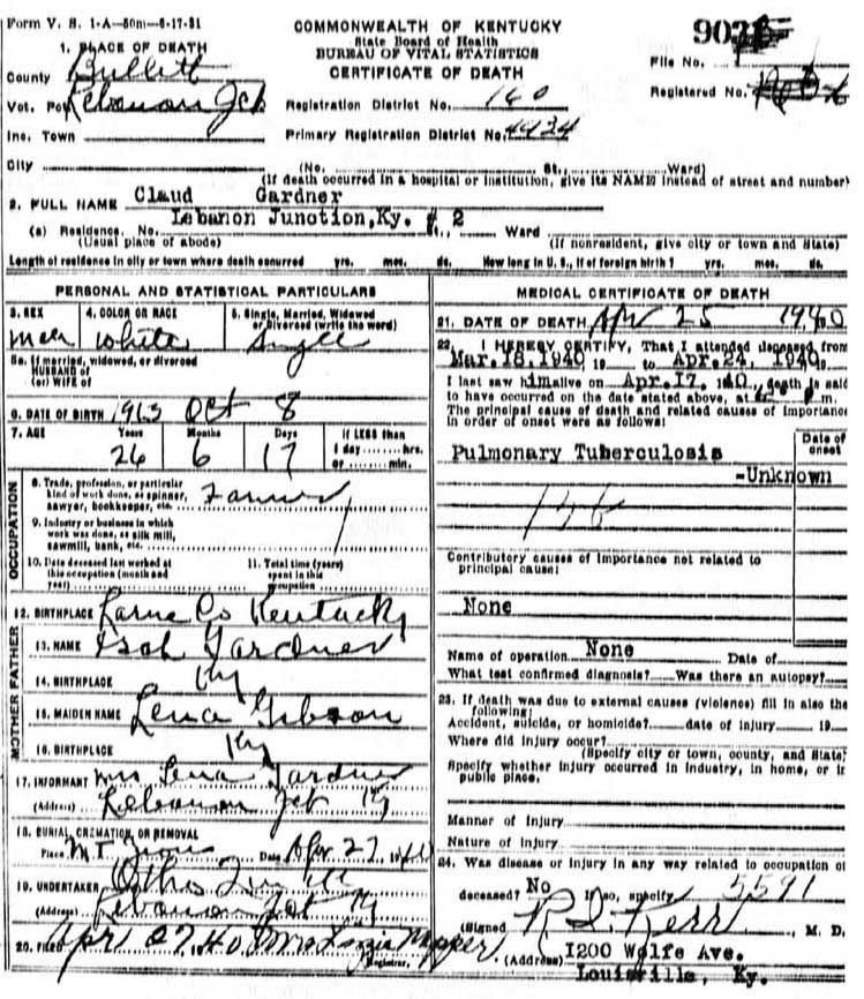 Form V. S. 1-A—50m—6-17-31
COMMONWEALTH OF KENTUCKY
State Board of Health
BUREAU OF VITAL STATISTICS
CERTIFICATE OF DEATH
File No.
Registered No.
1. PLACE OF DEATH
County Bullitt
Vot. Pct Lebanon Jct
Inc. Town
City
Registration District No. 160
Primary Registration District No. 4934
(No. St., Ward)
(If death occurred in a hospital or institution, give its NAME instead of street and number)
2. FULL NAME Claud Gardner
(a) Residence. No. Lebanon Junction, Ky. # 2 St., Ward
(Usual place of abode) (If nonresident, give city or town and State)
Length of residence in city or town where death occurred yrs. mos. ds. How long in U. S., if of foreign birth? yrs. mos. ds.
PERSONAL AND STATISTICAL PARTICULARS
3. SEX 4. COLOR OR RACE 5. Single, Married, Widowed
or Divorced (write the word)
white Single
5a. If married, widowed, or divorced
HUSBAND of
(or) WIFE of
6. DATE OF BIRTH 1913 Oct 8
7. AGE Years Months Days If LESS than
26 6 17 1 day hrs.
or min.
OCCUPATION
8. Trade, profession, or particular
kind of work done, as spinner,
sawyer, bookkeeper, etc. Farmer
9. Industry or business in which
work was done, as silk mill,
sawmill, bank, etc.
10. Date deceased last worked at
this occupation (month and
year)
11. Total time (years)
spent in this
occupation
12. BIRTHPLACE Larue Co Kentucky
FATHER
13. NAME Gardner
14. BIRTHPLACE Ky
MOTHER
15. MAIDEN NAME Lena Gibson
16. BIRTHPLACE Ky
17. INFORMANT Mrs Lena Gardner
(Address) Lebanon Jct Ky
18. BURIAL, CREMATION, OR REMOVAL
Place Mt Zion Date Apr 27, 1940
19. UNDERTAKER
(Address) Lebanon Jct Ky
20. FILED Apr 27, 40 Mrs Lizzie Napper
Registrar.
MEDICAL CERTIFICATE OF DEATH
21. DATE OF DEATH Apr 25 1940
22. I HEREBY CERTIFY, That I attended deceased from
Mar. 18, 1940, 19 to Apr. 24, 1940, 19
I last saw him alive on Apr. 17, 1940, death is said
to have occurred on the date stated above, at m.
The principal cause of death and related causes of importance
in order of onset were as follows:
Date of
onset
Pulmonary Tuberculosis
-Unknown
Contributory causes of importance not related to
principal cause:
None
Name of operation None Date of
What test confirmed diagnosis? Was there an autopsy?
23. If death was due to external causes (violence) fill in also the
following:
Accident, suicide, or homicide? date of injury 19
Where did injury occur?
(Specify city or town, county, and State)
Specify whether injury occurred in industry, in home, or in
public place.
Manner of injury
Nature of injury
24. Was disease or injury in any way related to occupation of
deceased? No If so, specify 5591
(Signed R. L. Kerr, M. D.
(Address) 1200 Wolfe Ave.
Louisville, Ky.